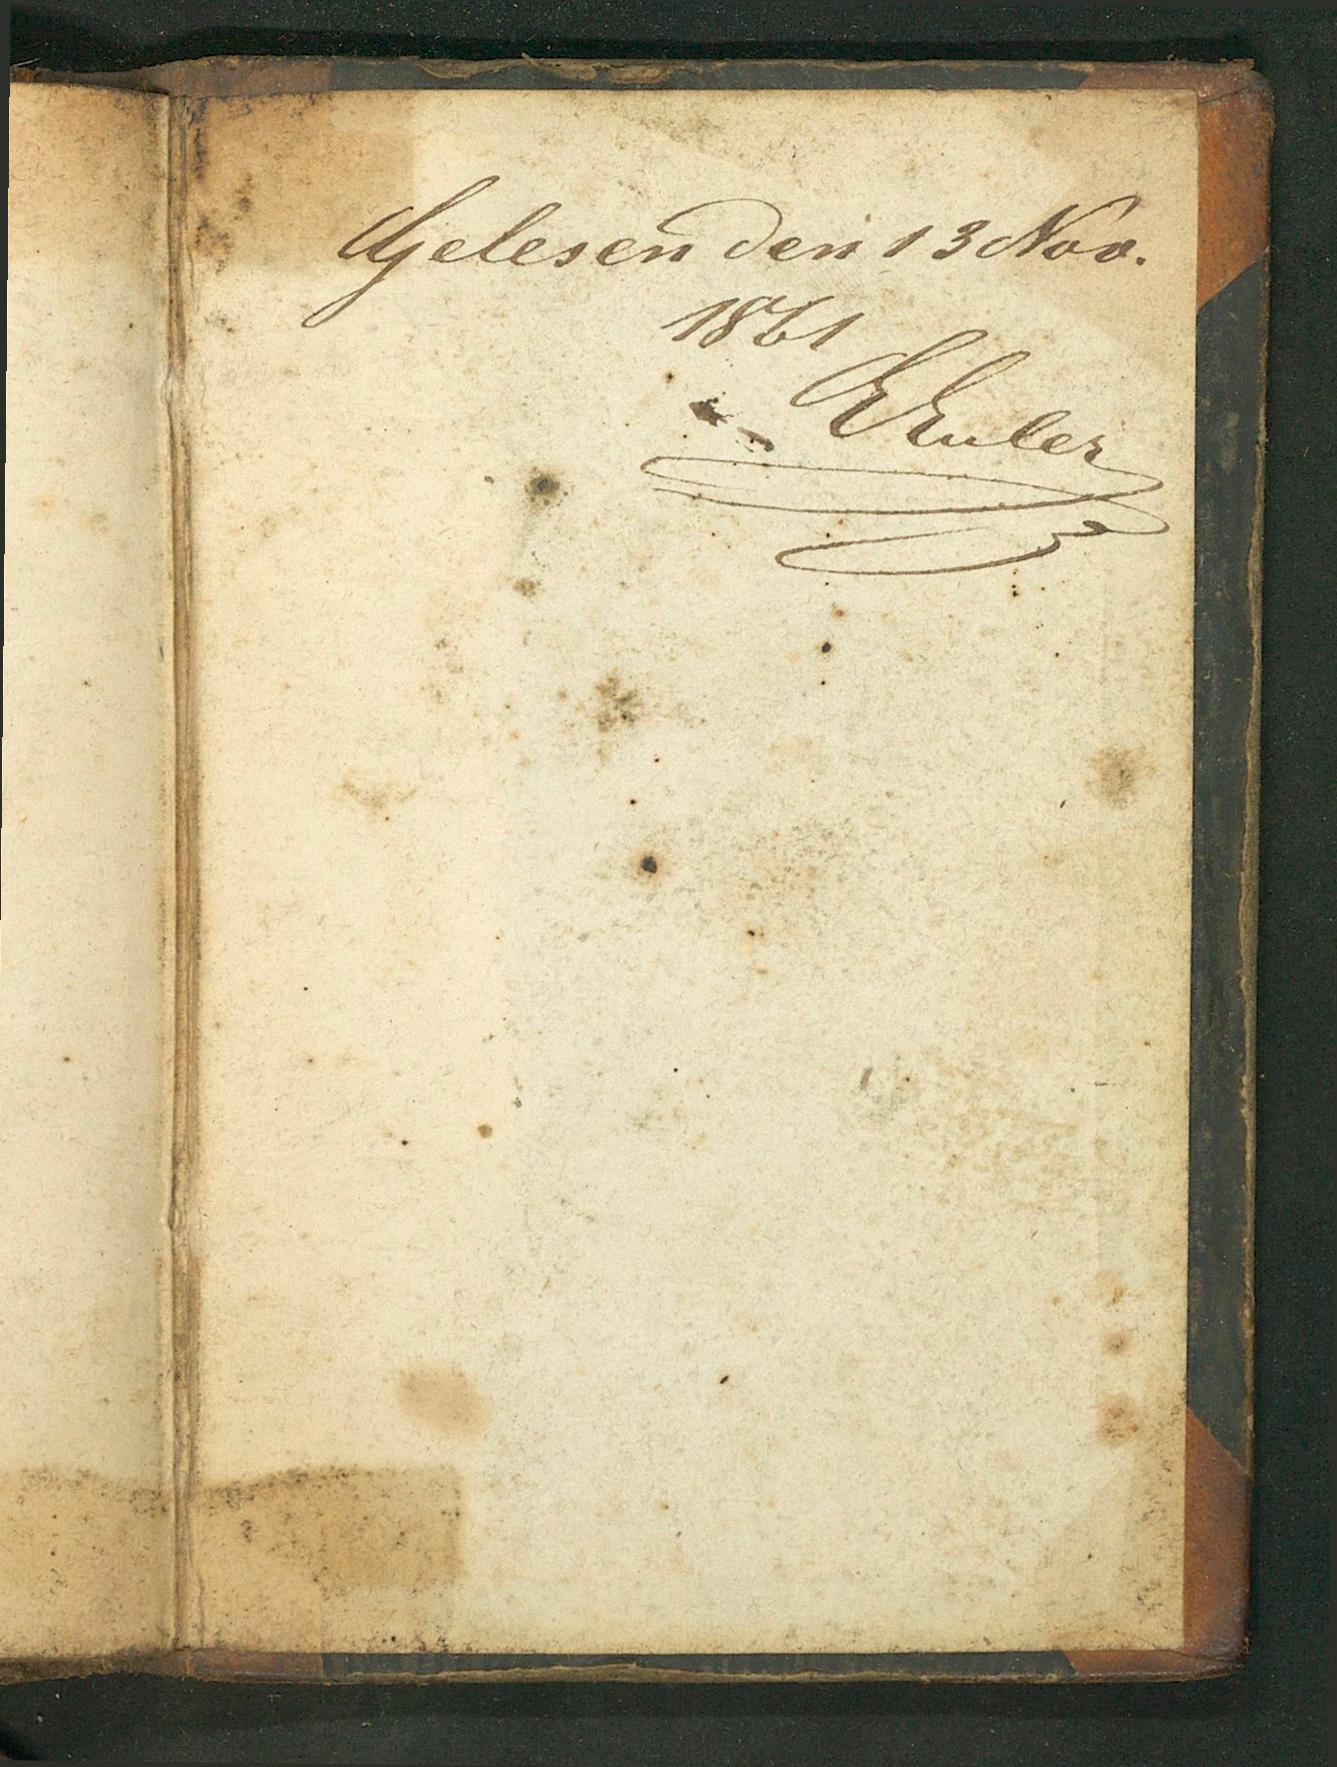 Gelesen den 13 Nov.
1861
Euler